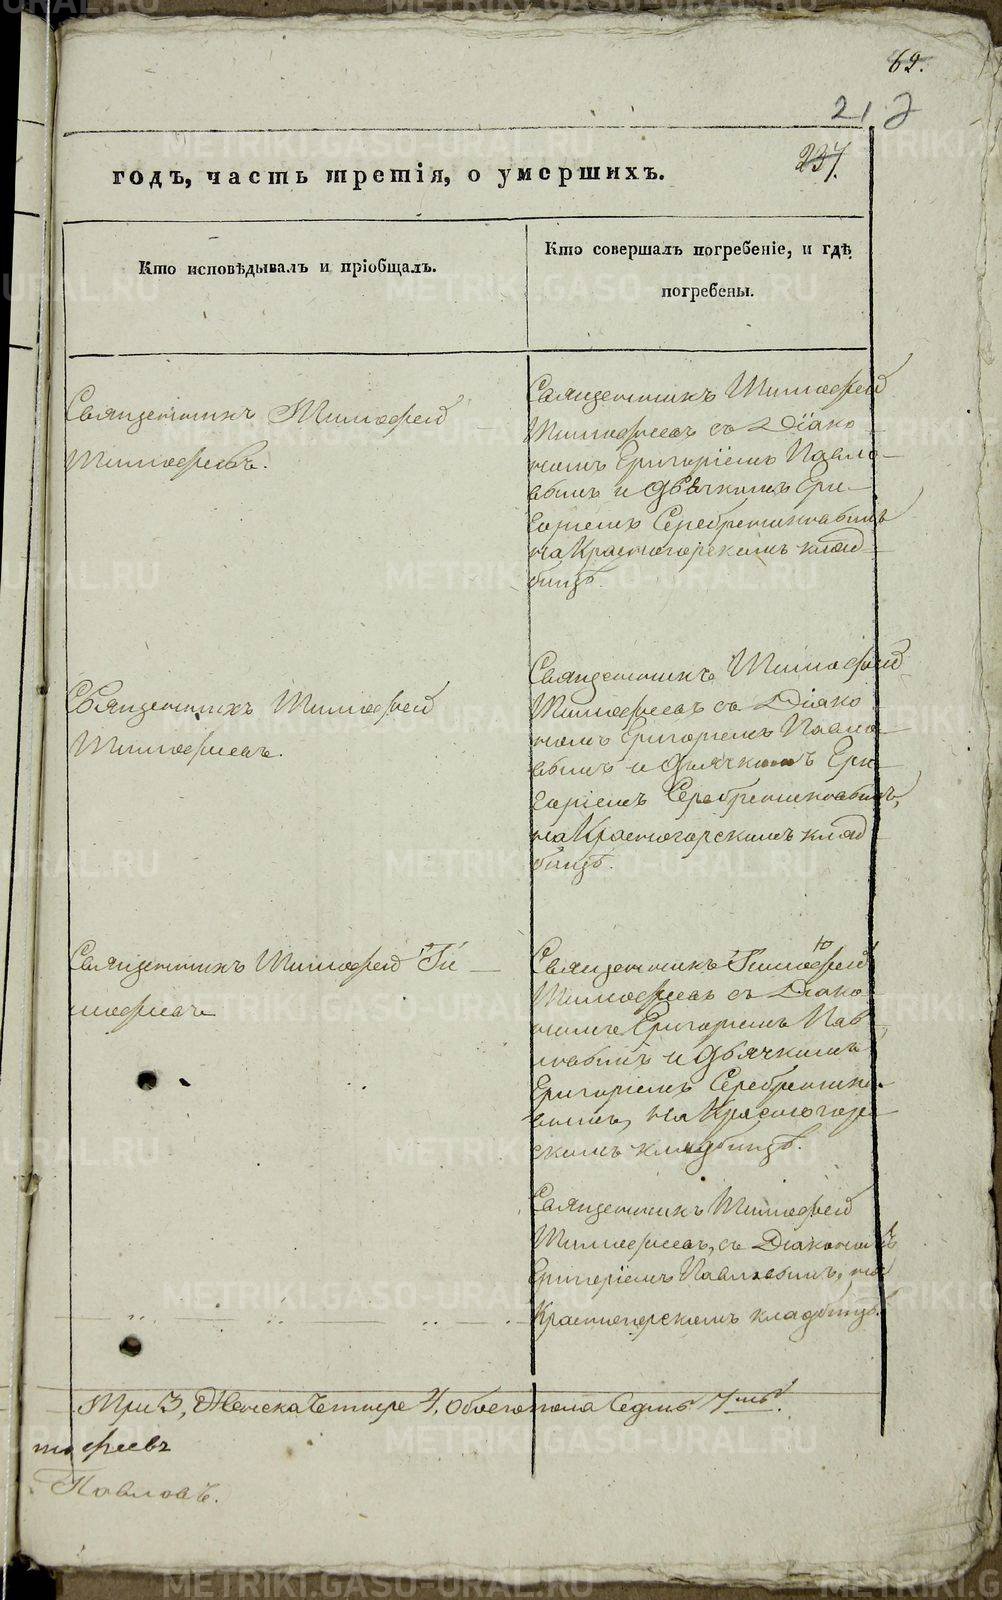 62.
212
237.
годъ, часть третія, о умершихъ.
Кто исповѣдывалъ и пріобщалъ.
Кто совершалъ погребеніе, и гдѣ
погребены.
Священникъ Тимофей
Тимофеевъ.
Священникъ Тимофей
Тимофеевъ съ Діако
номъ Григоріемъ Павло-
вымъ и дьячкомъ Гри-
горіемъ Серебренниковымъ
на Красногорскомъ клад-
бищѣ.
Священникъ Тимофей
Тимофеевъ.
Священникъ Тимофей
Тимофеевъ съ Діако
номъ Григоріемъ Павло-
вымъ и дьячкомъ Гри-
горіемъ Серебренниковымъ,
на Красногорскомъ клад
бищѣ.
Священникъ Тимофей Ти-
мофеевъ
Священникъ Тимофей
Тимофеевъ съ Діако
номъ Григоріемъ Пав
ловымъ и дьячкомъ
Григоріемъ Серебренико-
вымъ, на Красногор-
скомъ кладбищѣ.
Священникъ Тимофей
Тимофеевъ, съ Діакономъ
Григоріемъ Павловымъ, на
Красногорскомъ кладбищѣ.
Три 3, Женска Четыре 4, обоего пола Седмь 7мь.
мофеевъ
Павловъ.
METRIKI.GASO-URAL.RU